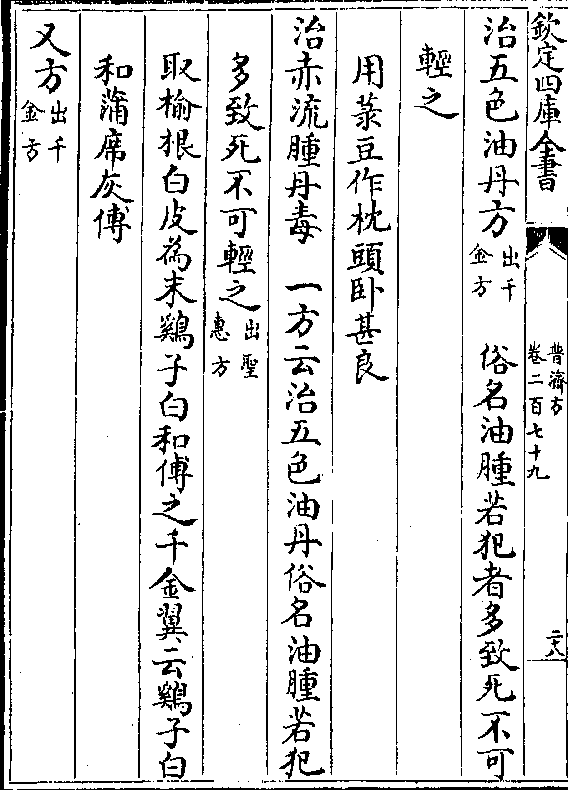 欽定四庫全書
普濟方
卷二百七十九
二十八
治五色油丹方出千金方 俗名油腫若犯者多致死不可
輕之
用菉豆作枕頭卧甚良
治赤流腫丹毒 一方云治五色油丹俗名油腫若犯
多致死不可輕之出聖惠方
取榆根白皮為末鷄子白和傅之千金翼云鷄子白
和蒲席灰傅
又方出千金方